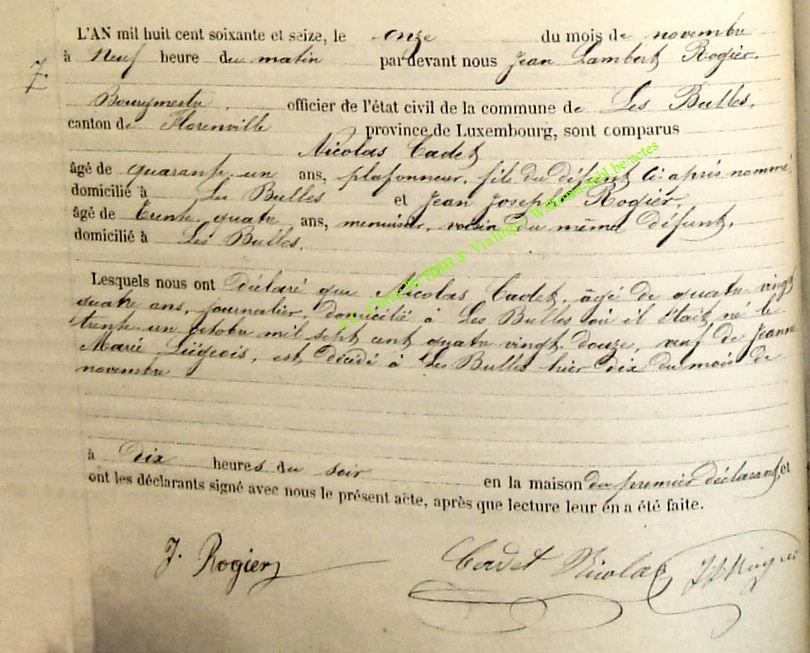 L'AN mil huit cent soixante et seize, le onze du mois de novembre
à Neuf heure du matin par devant nous Jean Lambert Rogier.
7.
Bourgmestre . officier de l'état civil de la commune de Les Bulles,
canton de Florenville province de Luxembourg, sont comparus
Nicolas Cadet
âgé de quarante un ans, plafonneur, fils du défunt ci-après nommé,
domicilié à Les Bulles et Jean Joseph Rogier,
âgé de trente quatre ans, menuisier, voisin du même défunt,
domicilié à Les Bulles.
Lesquels nous ont déclaré que Nicolas Cadet, âgé de quatre vingt
quatre ans, journalier, domicilié à Les Bulles où il était né le
trente un octobre mil sept cent quatre vingt douze, veuf de Jeanne
Marie Liégeois, est décédé à Les Bulles hier dix du mois de
novembre
à Dix heures du soir en la maison du premier déclarant, et
ont les déclarants signé avec nous le présent acte, après que lecture leur en a été faite.
J. Rogier Cadet Nicolas JJ Rogier